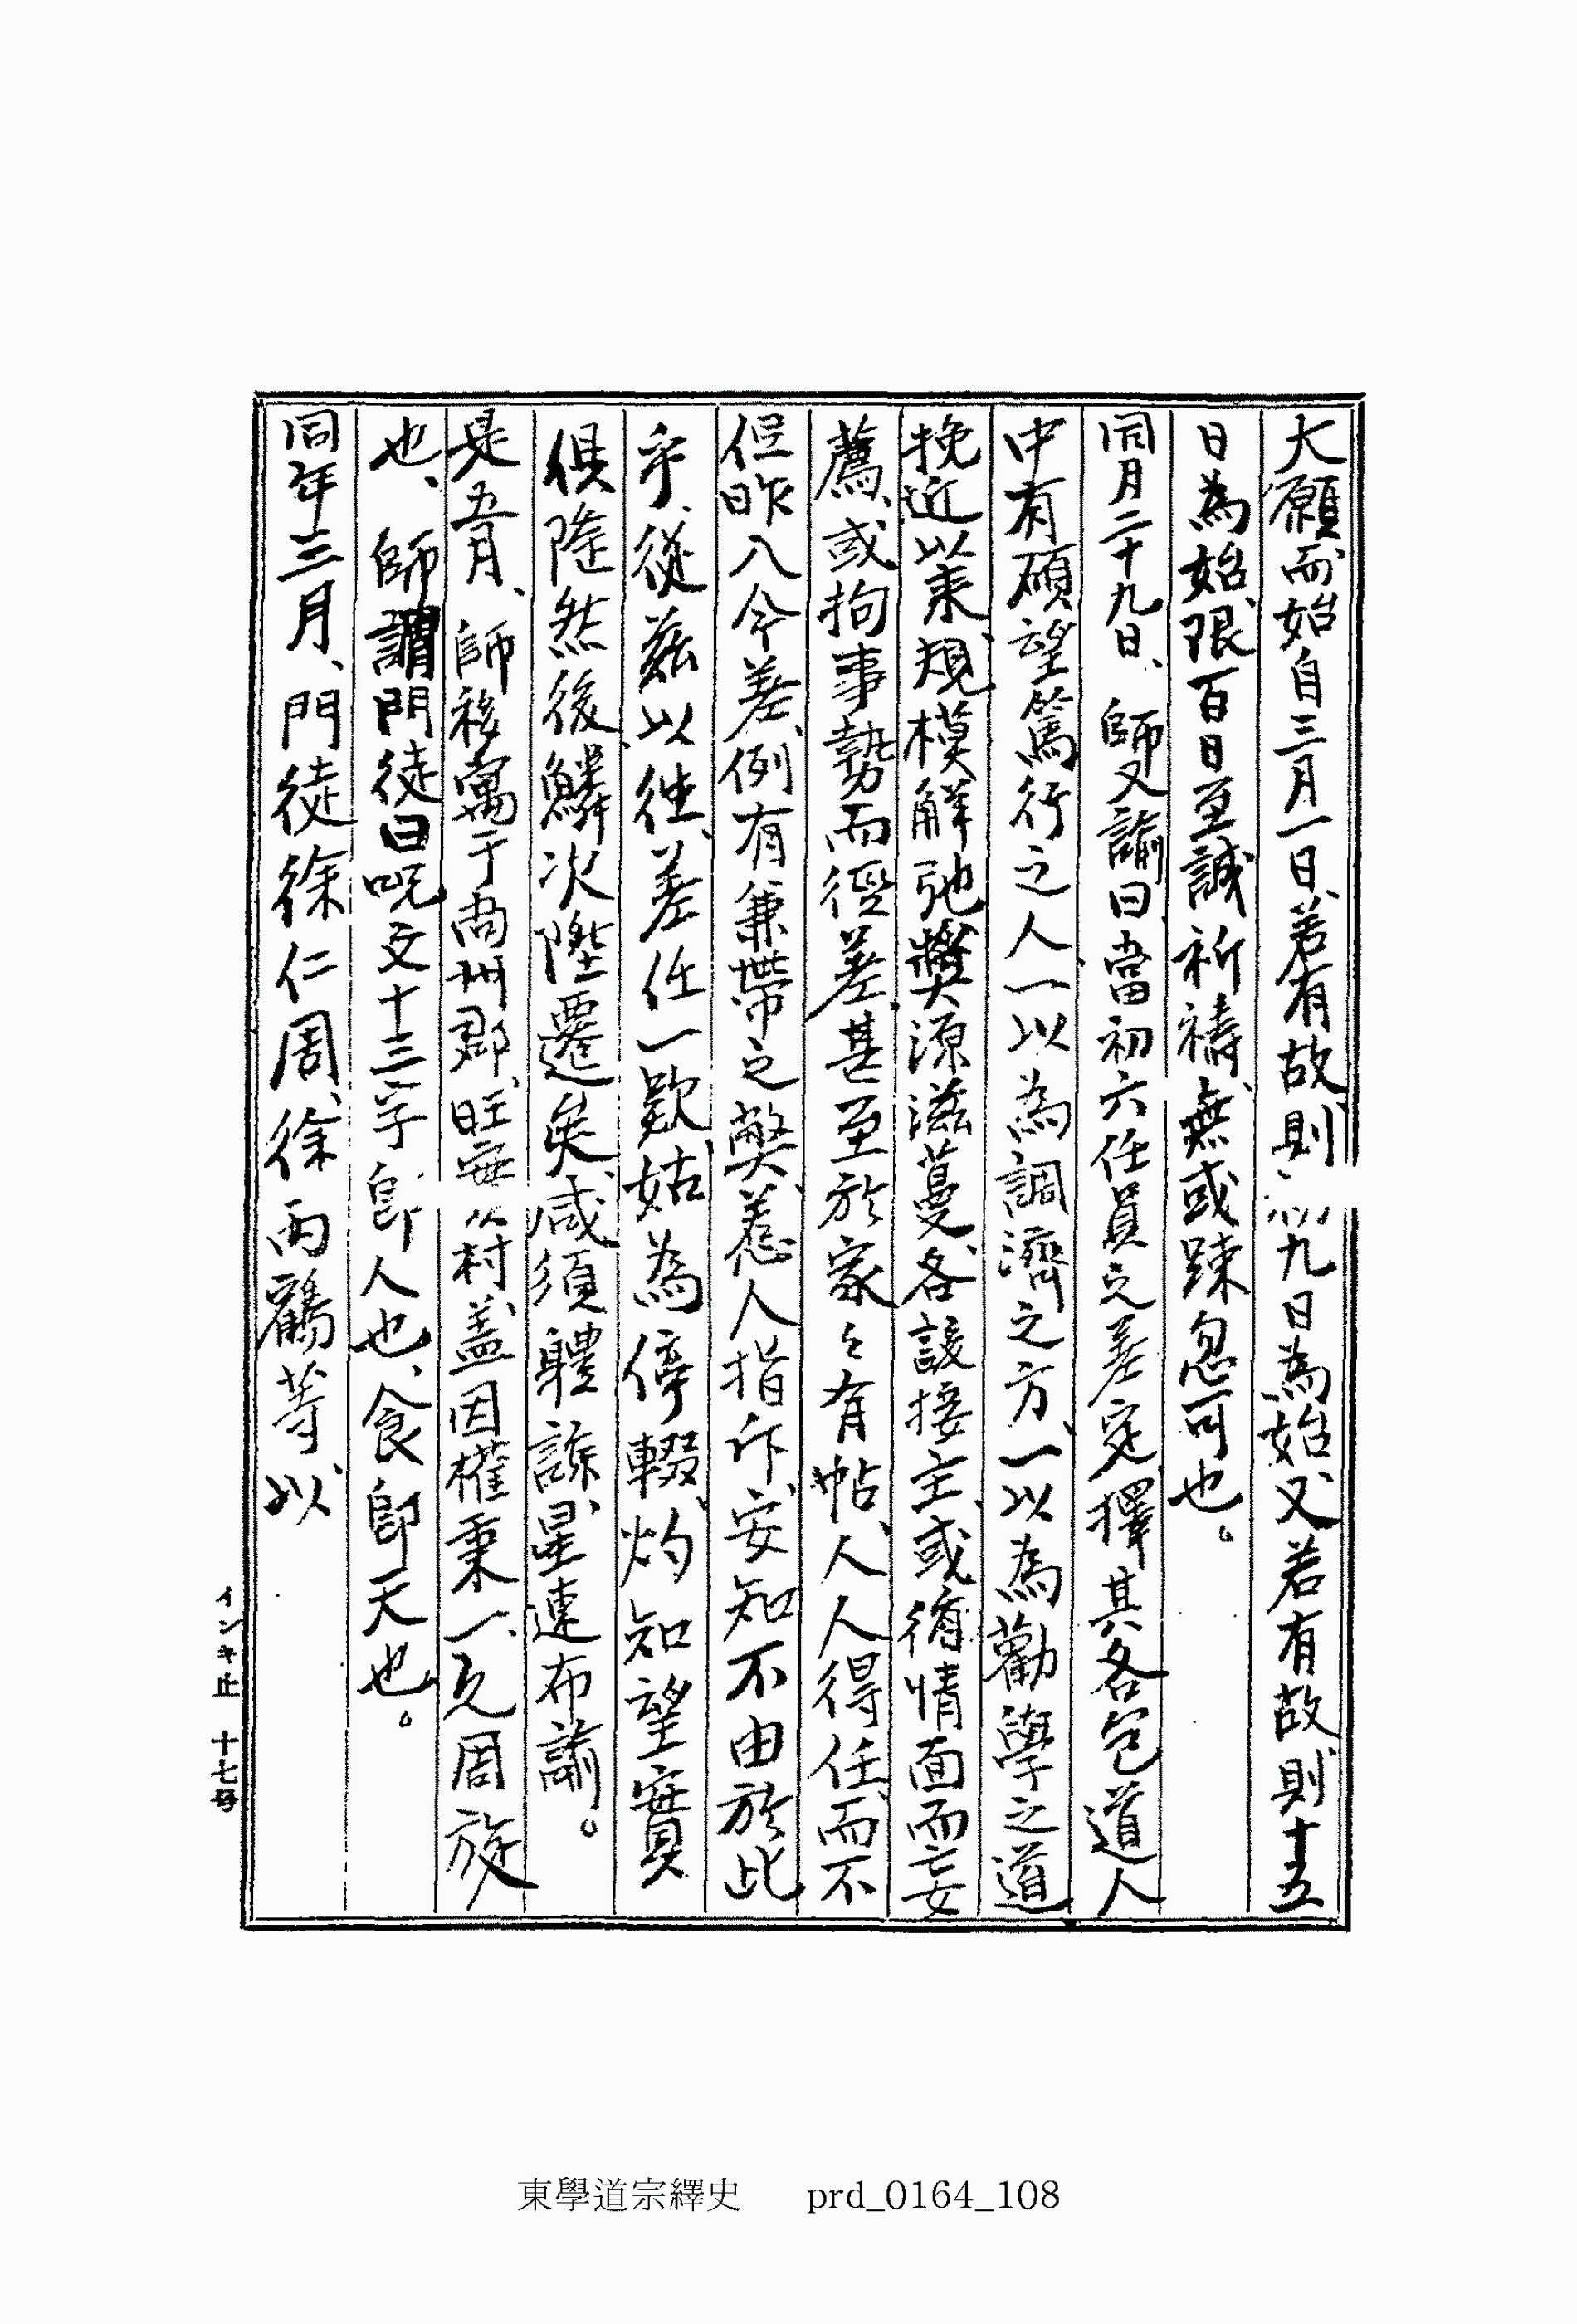 大願而始自三月一日、若有故則 九日為始、又若有故則十五
日為始、限百日至誠祈禱、無或踈忽可也。
同月二十九日、師又諭曰、當初六任員之差定、擇其各包道人
中有碩望篤行之人、一以為調濟之方、一以為勸學之道
挽近以来、規模解弛、獘源滋蔓、各該接主、或循情面而妄
薦、或拘事勢而徑差、甚至於家々有帖、人人得任、而不
但昨八今差、例有兼帶之獘、惹人指斥、安知不由於此
乎、從茲以往、差任一欵、姑為停轍、灼知望實
俱隆然後、鱗次陞遷矣、咸須軆諒、星速布諭。
是五月、師移寓于尚州郡、旺 村、盖因權秉一、周旋
也、師謂門徒曰呪文十三字卽人也、食卽天也。
同年三月、門徒徐仁周、徐丙鶴等、以
インキ止 十七
東學道宗繹史 prd_0164_108